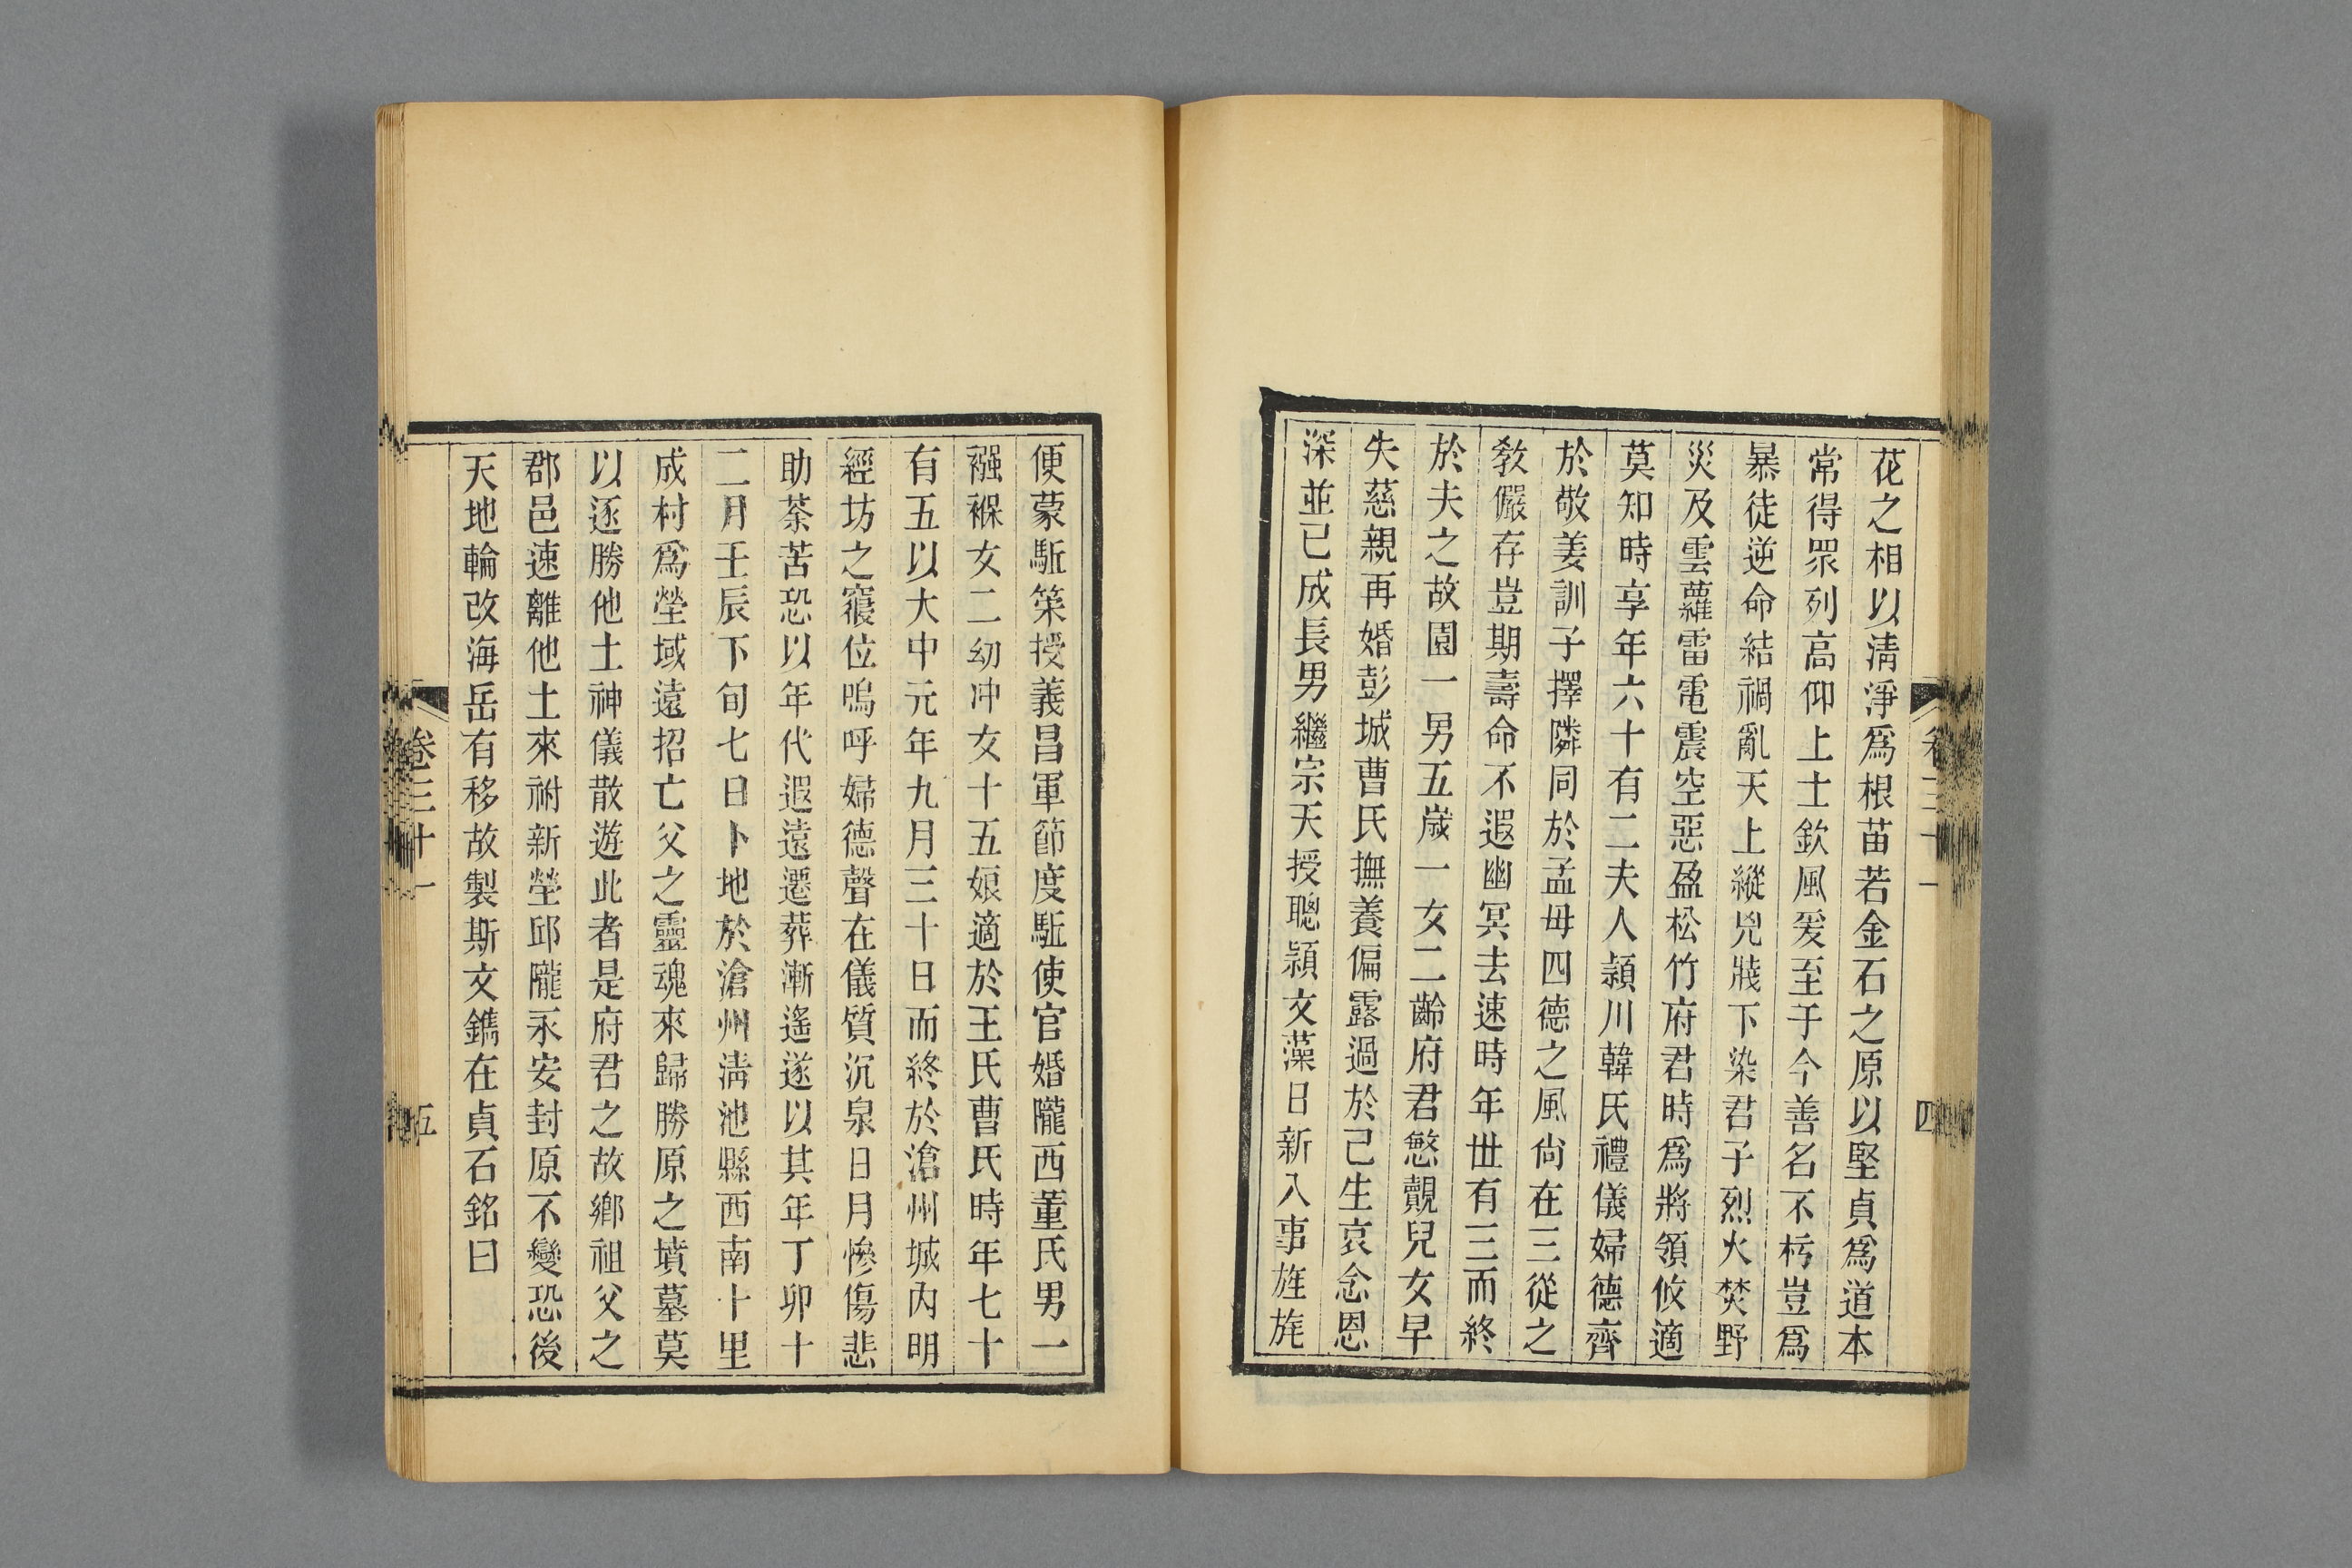 花之相以清淨爲根苗若金石之原以堅貞爲道本
常得眾列高仰上士欽風爰至于今善名不朽豈爲
暴徒逆命結禍亂天上縱兇戕下染君子烈火焚野
災及雲蘿雷電震空惡盈松竹府君時爲將領攸適
莫知時享年六十有二夫人潁川韓氏禮儀婦德齊
於敬姜訓子擇隣同於孟母四德之風尙在三從之
敎儼存豈期壽命不遐幽冥去速時年丗有三而終
於夫之故園一男五歲一女二齡府君慜覿兒女早
失慈親再婚彭城曹氏撫養偏露過於己生哀念恩
深並已成長男繼宗天授聰潁文藻日新入事旌旄
卷三十一
四
便蒙駈策授義昌軍節度駈使官婚隴西董氏男一
襁褓女二幼冲女十五娘適於王氏曹氏時年七十
有五以大中元年九月三十日而終於滄州城內明
經坊之寢位嗚呼婦德聲在儀質沉泉日月慘傷悲
助荼苦恐以年代遐遠遷葬漸遙遂以其年丁卯十
二月壬辰下旬七日卜地於滄州清池縣西南十里
成村爲塋域遠招亡父之靈魂來歸勝原之墳墓莫
以逐勝他土神儀散遊此者是府君之故鄉祖父之
郡邑速離他土來祔新塋邱隴永安封原不變恐後
天地輪改海岳有移故製斯文鐫在貞石銘曰
卷三十一
五